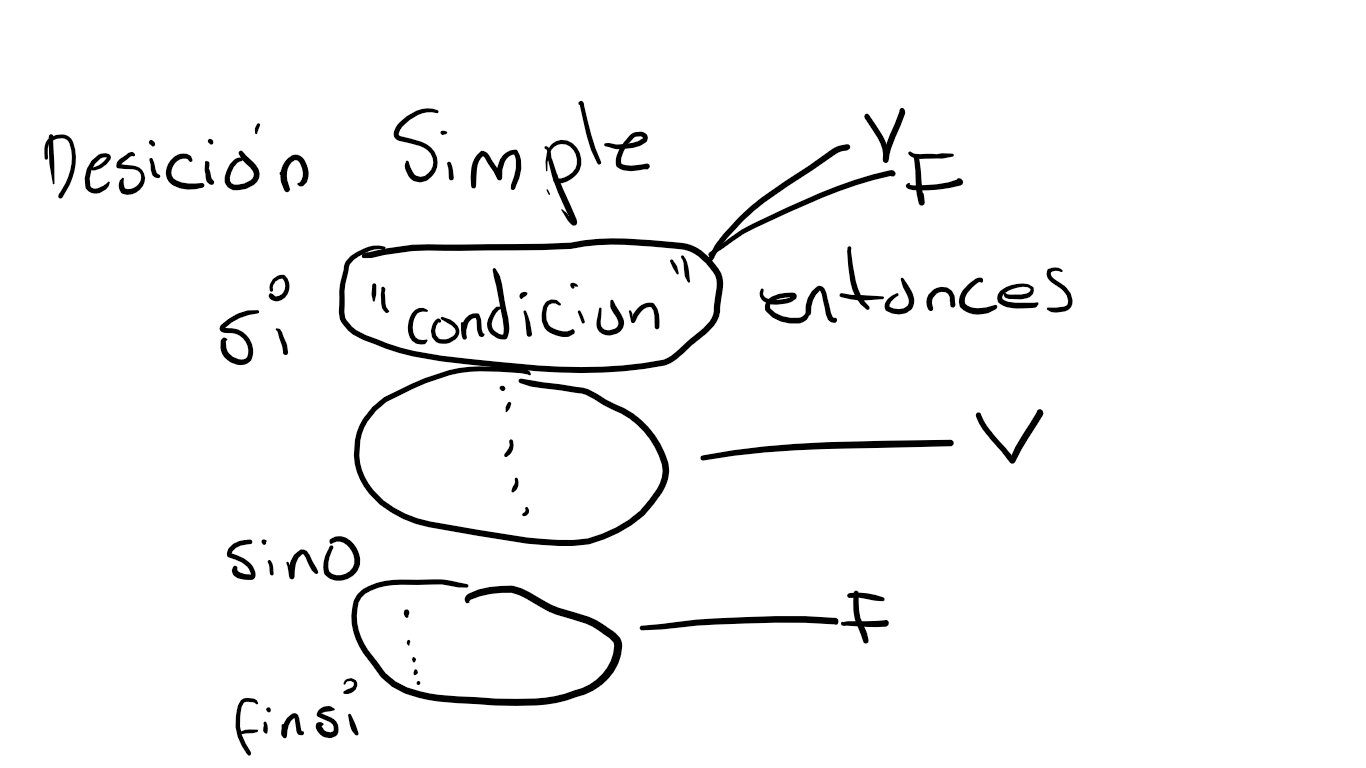 Desición Simple
V
F
si "condicion" entonces
V
sino
F
finsi